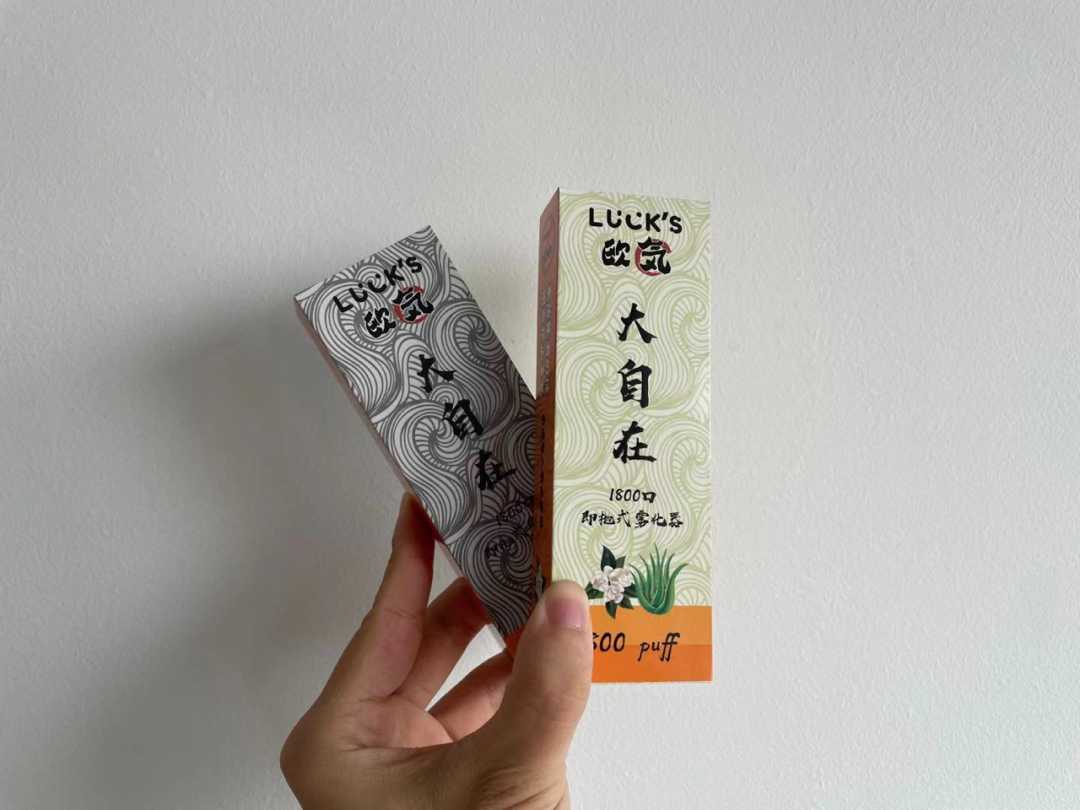 LUCK's
欧気
大自在
1800口
LUCK's
欧気
大自在
1800口
即抛式雾化器
800 puff